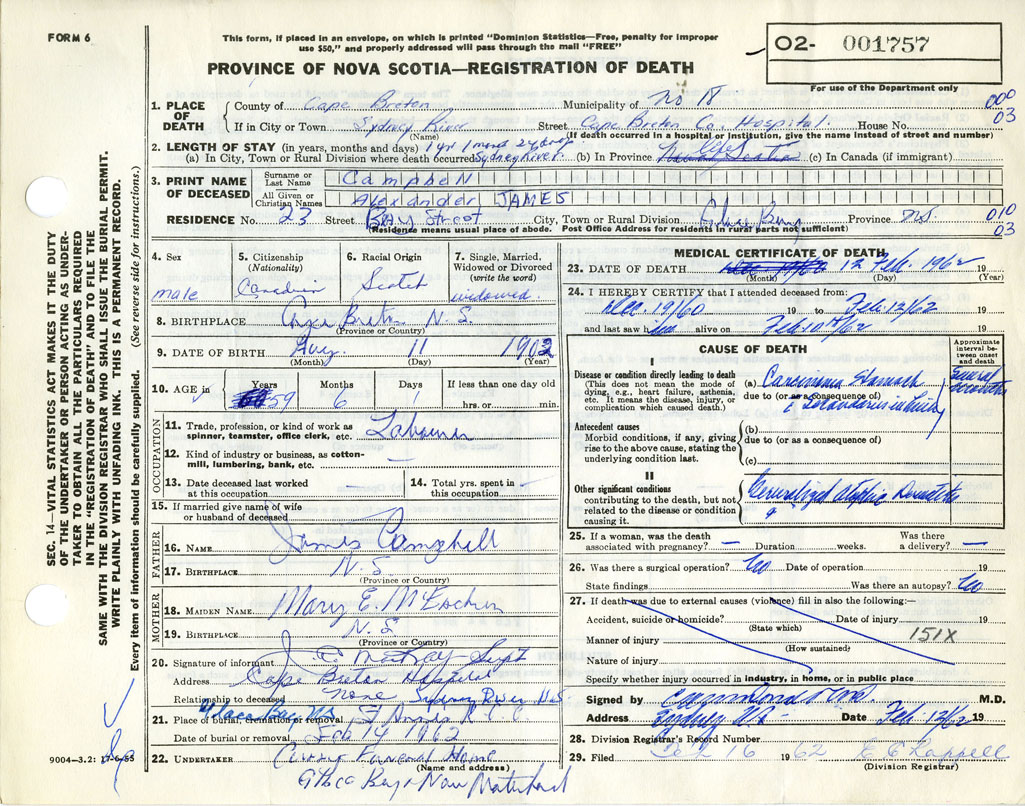 FORM 6
This form, if placed in an envelope, on which is printed "Dominion Statistics—Free, penalty for improper
use $50," and properly addressed will pass through the mail "FREE"
O2- 001757
For use of the Department only
PROVINCE OF NOVA SCOTIA—REGISTRATION OF DEATH
1. PLACE OF DEATH
County of Cape Breton Municipality of No 18
000
03
If in City or Town Sydney River Street Cape Breton Co. Hospital. House No.
(Name) (If death occurred in a hospital or institution, give name instead of street and number)
2. LENGTH OF STAY (in years, months and days) 1 yr 1 mond 24 days
(a) In City, Town or Rural Division where death occurred Sydney River. (b) In Province Life (c) In Canada (if immigrant)
3. PRINT NAME OF DECEASED
Surname or Last Name Campbell
All Given or Christian Names Alexander JAMES
RESIDENCE No. 23 Street Bay Street City, Town or Rural Division Glace Bay Province NS
010
03
(Residence means usual place of abode. Post Office Address for residents in rural parts not sufficient)
4. Sex male
5. Citizenship (Nationality) Canadian
6. Racial Origin Scotch
7. Single, Married, Widowed or Divorced (write the word) widowed.
8. BIRTHPLACE Cape Breton N.S.
(Province or Country)
9. DATE OF BIRTH Aug. 11 1902
(Month) (Day) (Year)
10. AGE in Years Months Days If less than one day old
59 6 1 hrs. or min.
OCCUPATION
11. Trade, profession, or kind of work as spinner, teamster, office clerk, etc. Labourer
12. Kind of industry or business, as cotton-mill, lumbering, bank, etc. —
13. Date deceased last worked at this occupation
14. Total yrs. spent in this occupation
15. If married give name of wife or husband of deceased
FATHER
16. NAME James Campbell
17. BIRTHPLACE N.S.
(Province or Country)
MOTHER
18. MAIDEN NAME Mary E.
19. BIRTHPLACE N.S
(Province or Country)
20. Signature of informant
Address Cape Breton Hospital
Relationship to deceased None Sydney River N.S
21. Place of burial, cremation or removal Glace Bay NS St Annes
Date of burial or removal Feb 14 1962
22. UNDERTAKER Curry Funeral Home
(Name and address)
Glace Bay
MEDICAL CERTIFICATE OF DEATH
23. DATE OF DEATH 12 Feb. 1962 19
(Month) (Day) (Year)
24. I HEREBY CERTIFY that I attended deceased from:
Dec. 19/60 19 to Feb. 12/62 19
and last saw him alive on Feb 10 /62 19
CAUSE OF DEATH
Approximate interval between onset and death
I
Disease or condition directly leading to death
(This does not mean the mode of dying, e.g., heart failure, asthenia, etc. It means the disease, injury, or complication which caused death.)
(a) Carcinoma Stomach
due to (or as a consequence of)
Several months
Antecedent causes
Morbid conditions, if any, giving rise to the above cause, stating the underlying condition last.
(b)
due to (or as a consequence of)
(c)
II
Other significant conditions
contributing to the death, but not related to the disease or condition causing it.
Generalized
25. If a woman, was the death associated with pregnancy? — Duration weeks. Was there a delivery? —
26. Was there a surgical operation? No Date of operation 19
State findings Was there an autopsy? No
27. If death was due to external causes (violence) fill in also the following:—
Accident, suicide or homicide? Date of injury 19
(State which)
151X
Manner of injury
(How sustained)
Nature of injury
Specify whether injury occurred in industry, in home, or in public place
Signed by M.D.
Address Sydney NS — Date Feb. 12/62 19
28. Division Registrar's Record Number
29. Filed Feb 16 1962 E C Chappell
(Division Registrar)
SEC. 14—VITAL STATISTICS ACT MAKES IT THE DUTY
OF THE UNDERTAKER OR PERSON ACTING AS UNDER-
TAKER TO OBTAIN ALL THE PARTICULARS REQUIRED
IN THE "REGISTRATION OF DEATH" AND TO FILE THE
SAME WITH THE DIVISION REGISTRAR WHO SHALL ISSUE THE BURIAL PERMIT.
WRITE PLAINLY WITH UNFADING INK. THIS IS A PERMANENT RECORD.
Every item of information should be carefully supplied. (See reverse side for instructions.)
9004—3.2: 17-6-55